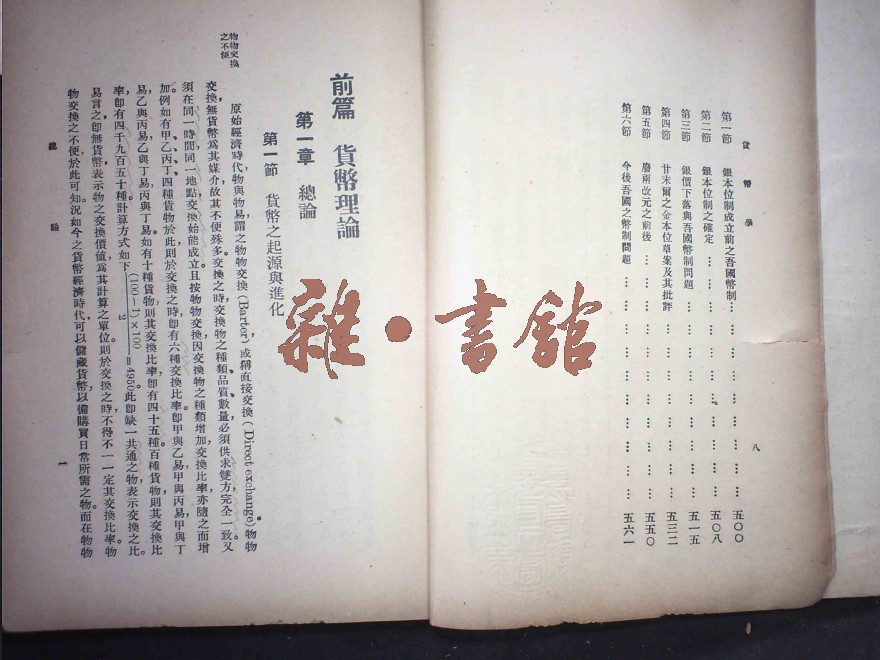 貨幣學
八
第一節 銀本位制成立前之吾國幣制…………………五〇〇
第二節 銀本位制之確定…………………五〇八
第三節 銀價下落與吾國幣制問題…………………五一五
第四節 甘末爾之金本位草案及其批評…………………五三二
第五節 廢兩改元之前後…………………五五〇
第六節 今後吾國之幣制問題…………………五六一
雜•書館
前篇 貨幣理論
第一章 總論
第一節 貨幣之起源與進化
物物交換之不便
原始經濟時代,物與物易,謂之物物交換(Barter),或稱直接交換(Direct exchange)。物物
交換,無貨幣爲其媒介,故其不便殊多。交換之時,交換物之種類、品質、數量,必須供求雙方完全一致,又
須在同一時間同一地點,交換始能成立。且按物物交換,因交換物之種類增加,交換比率亦隨之而增
加。例如有甲、乙、丙、丁四種貨物於此,則於交換之時,卽有六種交換比率,卽甲與乙易,甲與丙易,甲與丁
易,乙與丙易,乙與丁易,丙與丁易。如有十種貨物,則其交換比率卽有四十五種;百種貨物,則其交換比
率,卽有四千九百五十種,計算方式如下 (100−1)×100/2=4950。此卽缺一共通之物,表示交換之比
易言之,卽無貨幣表示物之交換價値,爲其計算之單位,則於交換之時,不得不一一定其交換比率。物
物交換之不便,於此可知。況如今之貨幣經濟時代,可以儲藏貨幣,以備購買日常所需之物。而在物物
總論
一